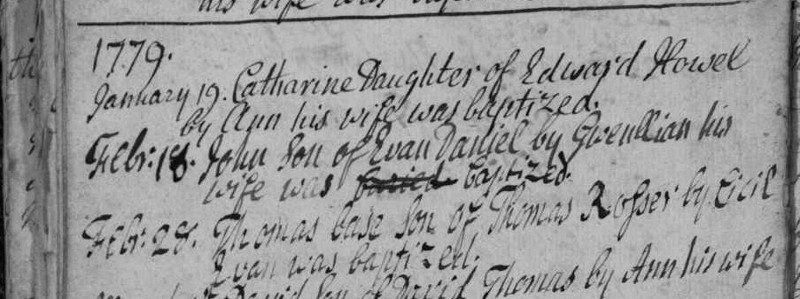 his wife was
1779.
January 19. Catharine Daughter of Edward Howel
by Ann his wife was baptized.
Febr: 18. John Son of Evan Daniel by Gwenllian his
wife was buried baptized.
Febr: 28. Thomas base Son of Thomas Rosser by Cicil
Evan was baptized.
David Son of David Thomas by Ann his wife